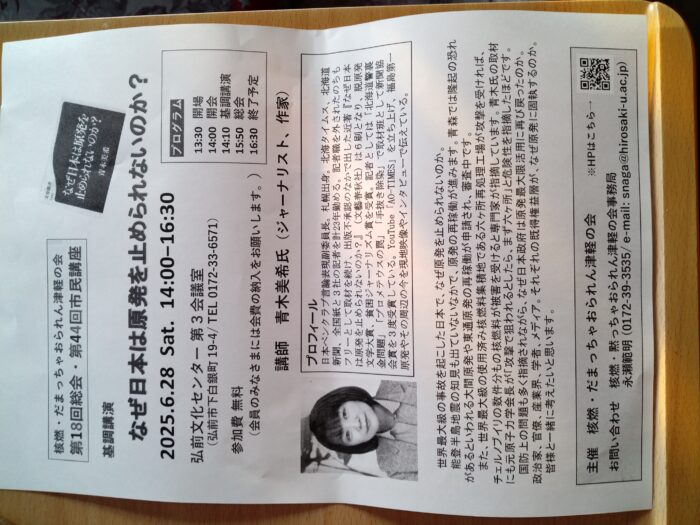 核燃・だまっちゃおられん津軽の会
第18回総会・第44回市民講座
基調講演
なぜ日本は原発を止められないのか？
2025.6.28 Sat. 14:00–16:30
弘前文化センター 第３会議室
（弘前市下白銀町 19-4/ TEL 0172-33-6571）
参加費 無料
（会員のみなさまには会費の納入をお願いします。）
講師　青木美希氏（ジャーナリスト、作家）
なぜ日本は原発を
止められないのか？
青木美希
プログラム
13:30 開場
14:00 開会
14:10 基調講演
15:50 総会
16:30 終了予定
プロフィール
日本ペンクラブ言論表現副委員長。札幌出身。北海タイムス、北海道
新聞、全国紙と３社の記者を計23年勤める。記者職を外されたのちも
フリーとして取材を続け、出版不承認のなかで出した近著『なぜ日本
は原発を止められないのか？』（文藝春秋社）は６刷となり、脱原発
文学大賞、貧困ジャーナリズム賞を受賞。記者としては「北海道警裏
金問題」「プロメテウスの罠」「手抜き除染」で取材班として新聞協
会賞を３度受賞している。YouTube「AO-TIMES」を立ち上げ、福島第一
原発やその周辺の今を現地映像やインタビューで伝えている。
世界最大級の事故を起こした日本で、なぜ原発を止められないのか。
能登半島地震の知見も出ていないなかで、原発の再稼働が進みます。青森では隆起の恐れ
があるといわれる大間原発や東通原発の再稼働が申請され、審査中です。
また、世界最大級の使用済み核燃料集積地である六ヶ所再処理工場が攻撃を受ければ、
チェルノブイリの数十倍もの核燃料が被害を受けると専門家が指摘しています。青木氏の取材
にも元原子力学会長が「攻撃で狙われるとしたら、まず六ヶ所」と危険性を指摘したほどです。
国防上の問題も多く指摘されながら、なぜ日本政府は原発最大限活用に再び戻ったのか。
政治家、官僚、産業界、学者、メディア。それぞれの既得権益層が、なぜ原発に固執するのか。
皆様と一緒に考えたいと思います。
主催　核燃・だまっちゃおられん津軽の会　※HPはこちら→
お問い合わせ　核燃・黙っちゃおられん津軽の会事務局
永瀬範明（0172-39-3535/ e-mail: snaga@hirosaki-u.ac.jp）